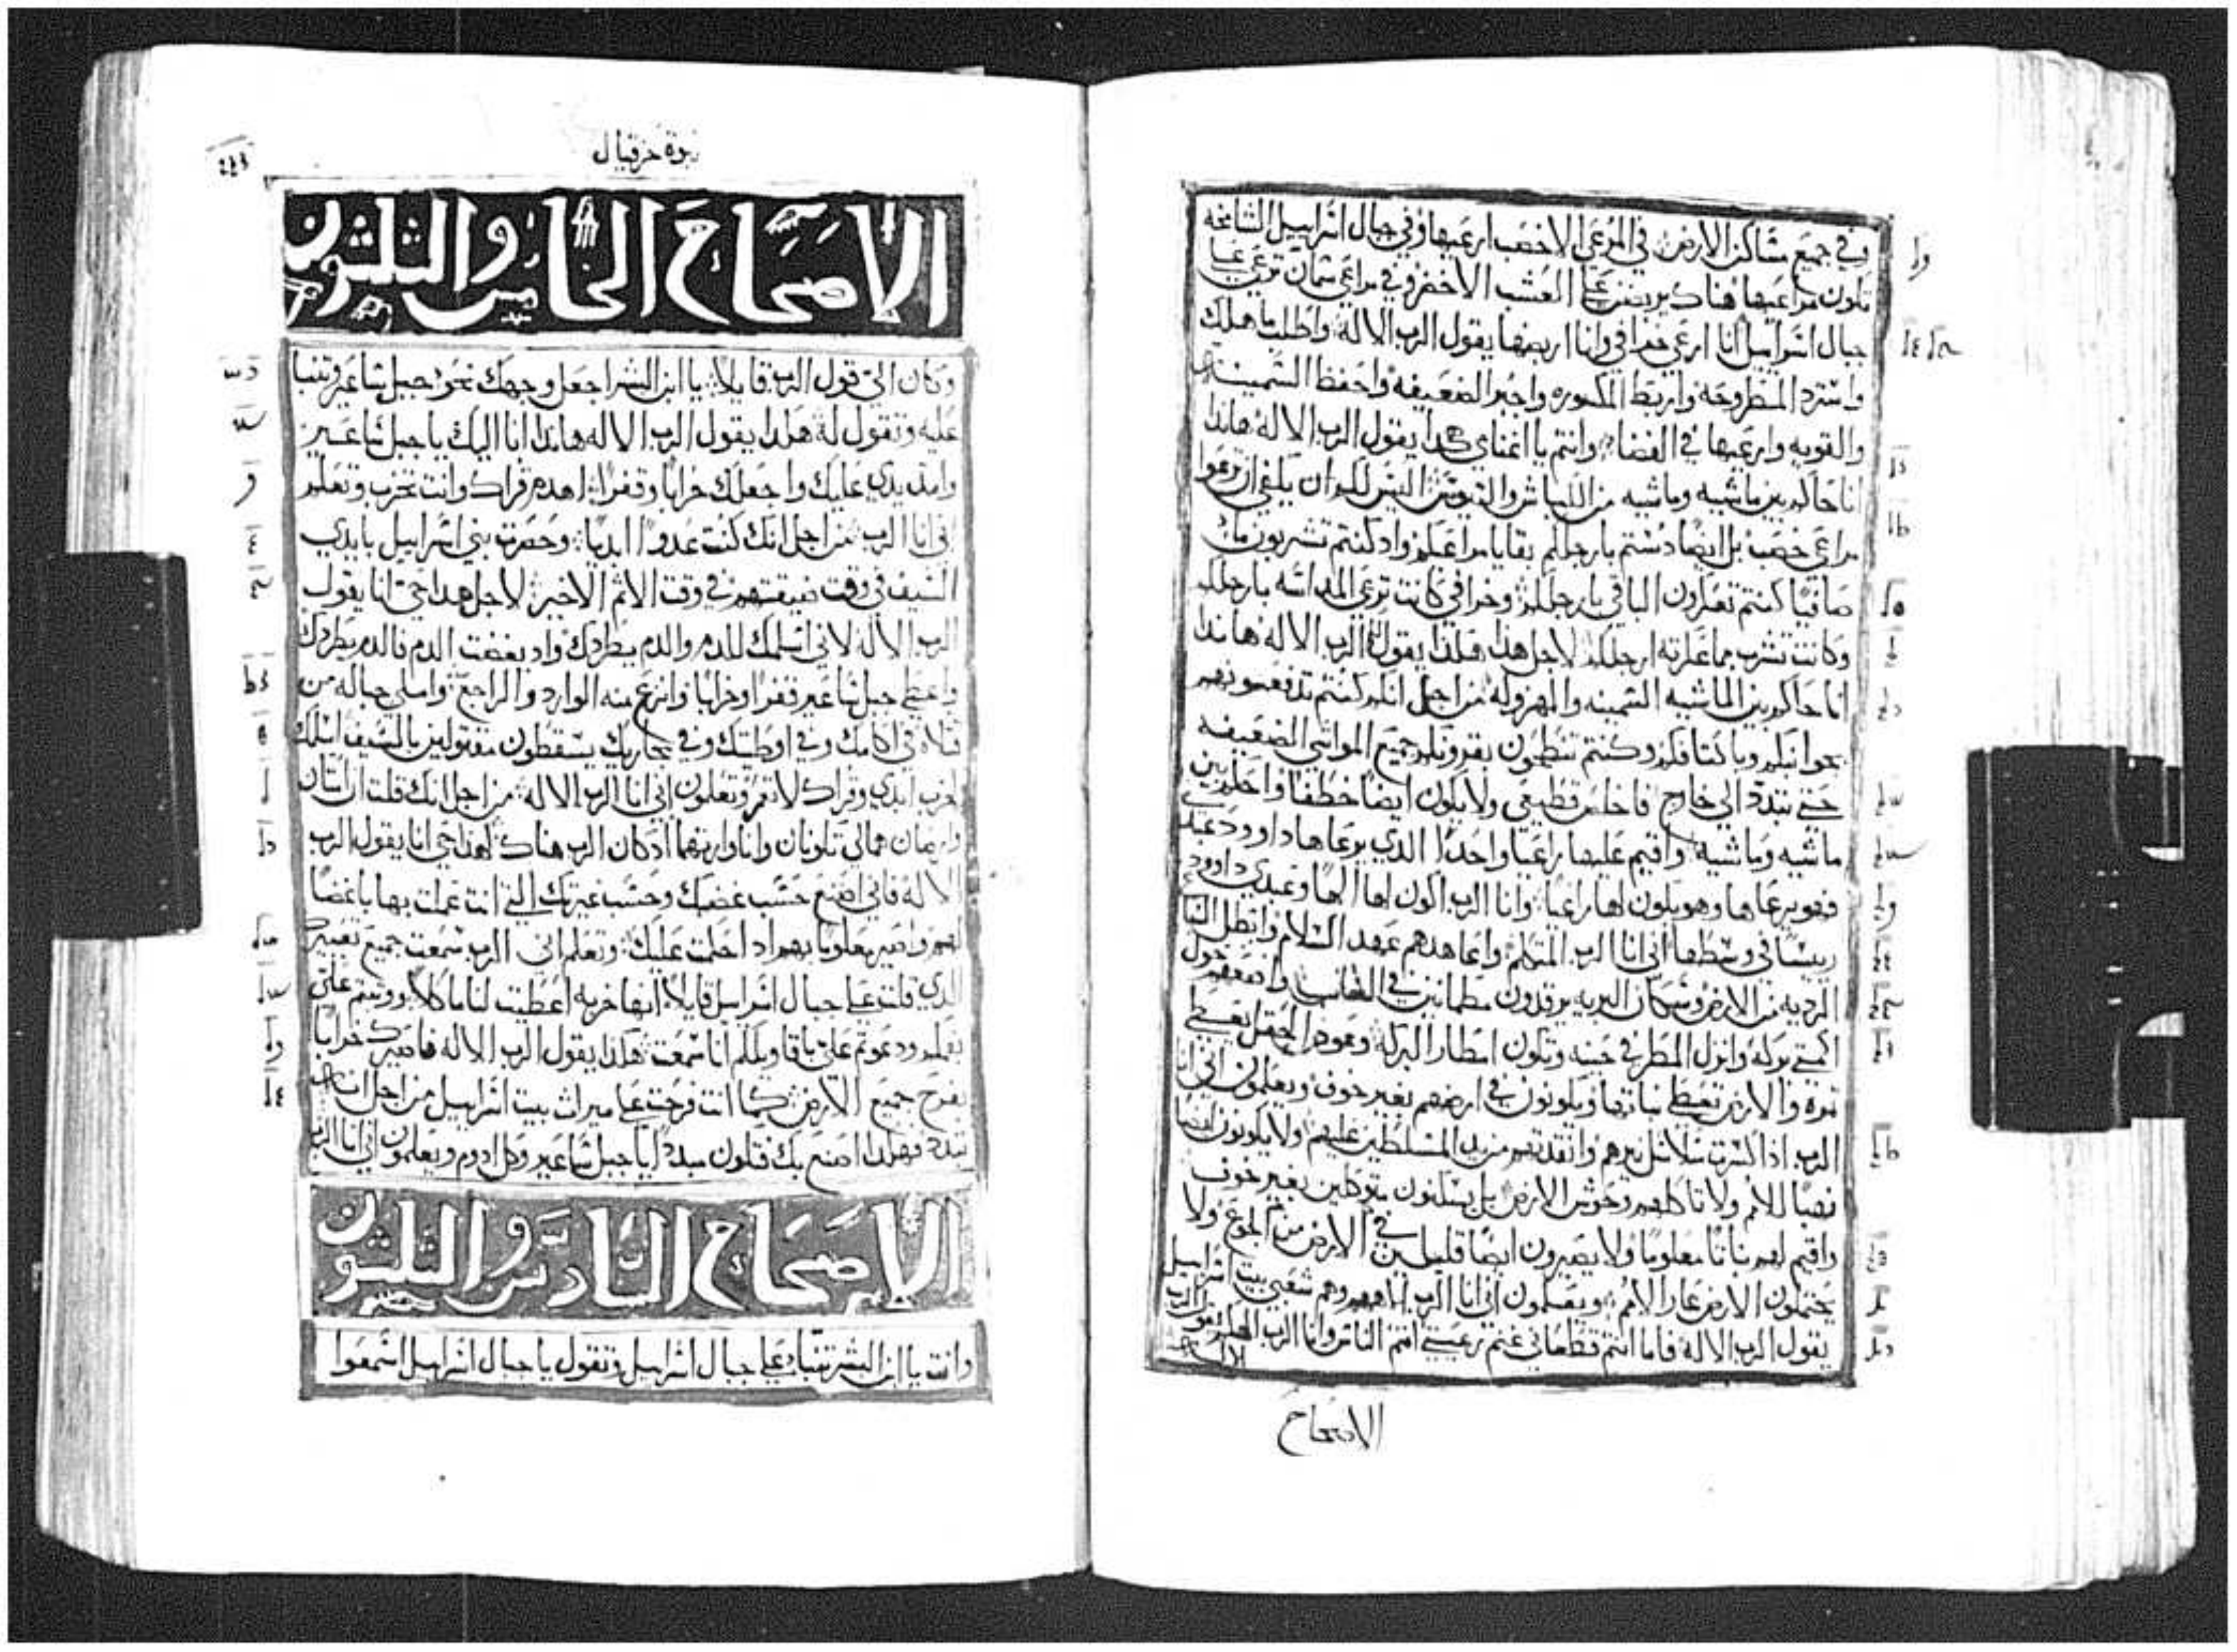 وفي جميع مساكن الارض في المرعى الاخصب ارعيها وفي جبال اسراييل الشامخه
تكون مراعيها هناك يربضن على العشب الاخضر وفي مراعي سمان ترعي على
جبال اسراييل انا ارعي خرافي وانا اربضها يقول الرب الاله واطلب ما هلك
واسترد المطروحه واربط المكسوره واجبر الضعيفه واحفظ السمينه
والقويه وارعيها في القضا وانتم يا اغنامي هكدا يقول الرب الاله هاندا
انا حاكم بين ماشيه وماشيه من الكباش والتيوس اليس لكم ان يكفي ان ترعوا
مراعي خصب بل ايضا دستم بارجلكم بقايا مراعيكم واد كنتم تشربون ما
صافيا كنتم تعكرون الباقي بارجلكم وخرافي كانت ترعي المداسه بارجلكم
وكانت تشرب مما عكرته ارجلكم لاجل هدا هكدا يقول الرب الاله هاندا
انا حاكم بين الماشيه السمينه والمهزوله من اجل انكم كنتم تدفعونهم
بجوانبكم وباكتافكم وكنتم تنطحون بقرونكم جميع المواشي الضعيفه
حتى تتبدد الي خارج فاخلص قطيعي ولا يكون ايضا خطفا واحكم بين
ماشيه وماشيه واقيم عليها راعيا واحدا الدي يرعاها داوود عبدي
فهو يرعاها وهو يكون لها راعيا وانا الرب اكون لها الها وعبدي داوود
رييسا في وسطها اني انا الرب المتكلم واعاهدهم عهد السلام وابطل السباع
الرديه من الارض وسكان البريه يرقدون مطمانين في الغاب واضعهم حول
اكمتي بركه وانزل المطر في حينه وتكون امطار البركه وعود الحقل يعطي
ثمره والارض تعطي نباتها ويكونون في ارضهم بغير خوف ويعلمون اني انا
الرب ادا كسرت سلاسل نيرهم وانقدتهم من يد المسلطين عليهم ولا يكونون ايضا
نهبا للامم ولا تاكلهم وحوش الارض بل يسكنون متوكلين بغير خوف
واقيم لهم نباتا معلوما ولا يصيرون ايضا قليلين في الارض من الجوع ولا
يحتملون الارض عار الامم ويعلمون اني انا الرب الاههم وهم شعبي بيت اسراييل
يقول الرب الاله فاما انتم قطعاني غنم رعيتي انتم الناس وانا الرب الهكم يقول الرب
الاله
الاصحاح
نبوة حزقيال
الاصحاح الخامس والثلثون
وكان الي قول الرب قايلا يا ابن البشر اجعل وجهك نحو جبل ساعير وتنبا
عليه وتقول له هكدا يقول الرب الاله هاندا انا اليك يا جبل ساعير
وامد يدي عليك واجعلك خرابا وقفرا اهدم قراك وانت تخرب وتعلم
اني انا الرب من اجل انك كنت عدوا ابديا وحصرت بني اسراييل بايدي
السيف في وقت ضيقتهم في وقت الاثم الاخير لاجل هدا حي انا يقول
الرب الاله لاني اسلمك للدم والدم يطردك واد بغضت الدم فالدم يطردك
واعطي جبل ساعير قفرا وخرابا وانزع منه الوارد والراجع واملي جباله من
قتلاه في اكامك وفي اوطيتك وفي مجاريك يسقطون مقتولين بالسيف اسلمك
لخرب ابدي وقراك لا تعمر وتعلمون اني انا الرب الاله من اجل انك قلت ان امتان
وارضان هما لي تكونان وانا وارثهما اد كان الرب هناك لهدا حي انا يقول الرب
الاله فاني اصنع حسب غضبك وحسب غيرتك التي انت عملت بها باغضا
لهم واصير معلوما بهم اد احكمت عليك وتعلم اني الرب سمعت جميع تعييرك
الدي قلت على جبال اسراييل قايلا انها خربه اعطيت لنا ماكلا وقمتم علي
بفمكم ودعوتم علي باقاويلكم انا سمعت هكدا يقول الرب الاله فاصيرك خرابا
بفرح جميع الارض كما انت فرحت على ميراث بيت اسراييل من اجل انه
تبدد فهكدا اصنع بك فتكون مبددا يا جبل ساعير وكل ادوم ويعلمون اني انا الرب
الاصحاح السادس والثلثون
وانت يا ابن البشر تنبا على جبال اسراييل وتقول يا جبال اسراييل اسمعوا